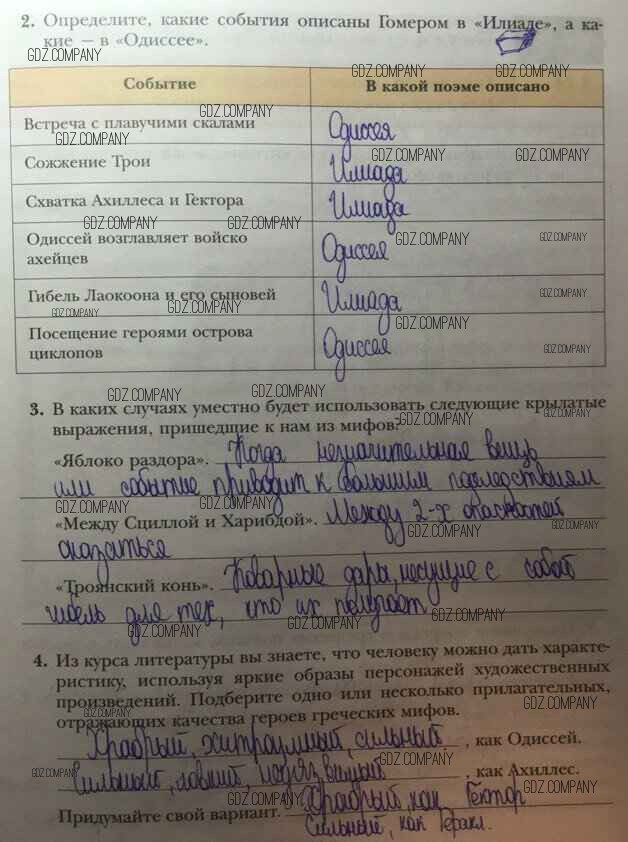 2. Определите, какие события описаны Гомером в «Илиаде», а ка-
кие — в «Одиссее».
GDZ.COMPANY GDZ.COMPANY GDZ.COMPANY
Событие В какой поэме описано
GDZ.COMPANY
Встреча с плавучими скалами Одиссея
GDZ.COMPANY
Сожжение Трои Илиада
GDZ.COMPANY GDZ.COMPANY
Схватка Ахиллеса и Гектора Илиада
GDZ.COMPANY GDZ.COMPANY
Одиссей возглавляет войско
ахейцев Одиссея
GDZ.COMPANY GDZ.COMPANY
Гибель Лаокоона и его сыновей Илиада
GDZ.COMPANY GDZ.COMPANY GDZ.COMPANY
GDZ.COMPANY
Посещение героями острова
циклопов Одиссея
GDZ.COMPANY
GDZ.COMPANY GDZ.COMPANY
3. В каких случаях уместно будет использовать следующие крылатые
выражения, пришедшие к нам из мифов?
GDZ.COMPANY GDZ.COMPANY
«Яблоко раздора». Когда незначительная вещь
или событие приводит к большим последствиям
GDZ.COMPANY GDZ.COMPANY GDZ.COMPANY
«Между Сциллой и Харибдой». Между 2-х опасностей
GDZ.COMPANY GDZ.COMPANY GDZ.COMPANY
оказаться
«Троянский конь». Коварные дары, несущие с собой
GDZ.COMPANY GDZ.COMPANY
гибель для тех, кто их получает
GDZ.COMPANY GDZ.COMPANY
4. Из курса литературы вы знаете, что человеку можно дать характе-
ристику, используя яркие образы персонажей художественных
произведений. Подберите одно или несколько прилагательных,
отражающих качества героев греческих мифов.
GDZ.COMPANY GDZ.COMPANY
Храбрый, хитроумный, сильный, как Одиссей.
GDZ.COMPANY GDZ.COMPANY
Сильный, ловкий, неуязвимый, как Ахиллес.
GDZ.COMPANY GDZ.COMPANY
Придумайте свой вариант. Храбрый, как Гектор
Сильный, как Геракл.
GDZ.COMPANY